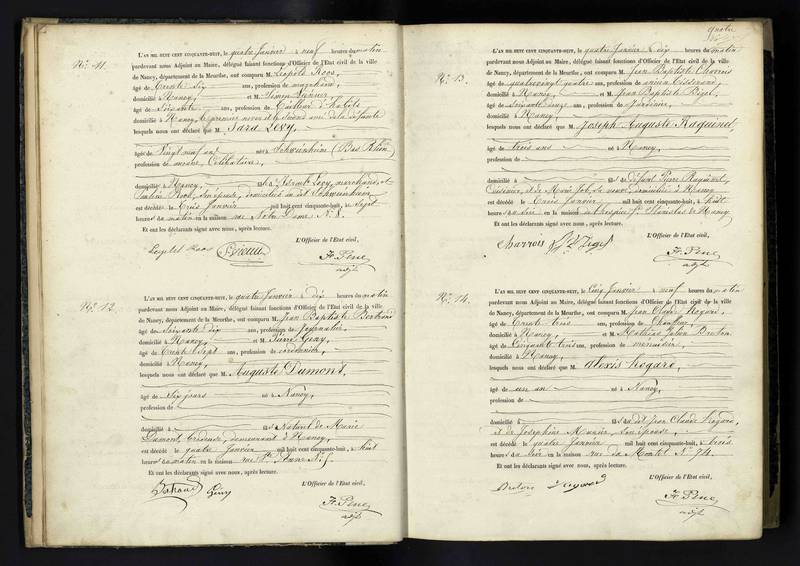 N.º 11.
L'AN MIL HUIT CENT CINQUANTE-HUIT, le quatre Janvier à neuf heures du matin
pardevant nous Adjoint au Maire, délégué faisant fonctions d'Officier de l'Etat civil de la ville
de Nancy, département de la Meurthe, ont comparu M. Léopold Roos,
âgé de trente six ans, profession de magasinier,
domicilié à Nancy, et M. Simon
âgé de soixante ans, profession de tailleur d'habits
domicilié à Nancy, le premier neveu et le second ami de la défunte
lesquels nous ont déclaré que M. Sara Levy,
âgée de vingt neuf ans née à Schweinheim (Bas Rhin)
profession de Célibataire,
domiciliée à Nancy, fille d' Levy, marchand, et
Roos, son épouse, domiciliés au dit Schweinheim
est décédée le trois Janvier mil huit cent cinquante-huit, à Sept
heures du matin en la maison rue Notre Dame N.º 8.
Et ont les déclarants signé avec nous, après lecture.
L'Officier de l'Etat civil,
N.º 12.
L'AN MIL HUIT CENT CINQUANTE-HUIT, le quatre Janvier à dix heures du matin
pardevant nous Adjoint au Maire, délégué faisant fonctions d'Officier de l'Etat civil de la ville
de Nancy, département de la Meurthe, ont comparu M. Jean Baptiste Bertrand
âgé de soixante dix ans, profession de journalier,
domicilié à Nancy, et M. Pierre Geny,
âgé de trente sept ans, profession de cordonnier,
domicilié à Nancy,
lesquels nous ont déclaré que M. Auguste Dumont,
âgé de six jours né à Nancy,
profession de
domicilié à fils naturel de Marie
Dumont, brodeuse, demeurant à Nancy,
est décédé le quatre Janvier mil huit cent cinquante-huit, à huit
heures du matin en la maison rue Ste Anne N.º
Et ont les déclarants signé avec nous, après lecture.
L'Officier de l'Etat civil,
Geny
quatre
N.º 13.
L'AN MIL HUIT CENT CINQUANTE-HUIT, le quatre Janvier à dix heures du matin
pardevant nous Adjoint au Maire, délégué faisant fonctions d'Officier de l'Etat civil de la ville
de Nancy, département de la Meurthe, ont comparu M. Jean Baptiste Charrois
âgé de quatrevingt quatre ans, profession de ancien tisserand,
domicilié à Nancy, et M. Jean Baptiste
âgé de soixante douze ans, profession de jardinier,
domicilié à Nancy,
lesquels nous ont déclaré que M. Joseph Auguste Raguinel,
âgé de trois ans né à Nancy,
profession de
domicilié à fils de défunt Pierre Raguinel,
et de Marie sa veuve domiciliée à Nancy
est décédé le trois Janvier mil huit cent cinquante-huit, à huit
heures du soir en la maison St. Stanislas de Nancy
Et ont les déclarants signé avec nous, après lecture.
L'Officier de l'Etat civil,
Charrois
N.º 14.
L'AN MIL HUIT CENT CINQUANTE-HUIT, le cinq Janvier à neuf heures du matin
pardevant nous Adjoint au Maire, délégué faisant fonctions d'Officier de l'Etat civil de la ville
de Nancy, département de la Meurthe, ont comparu M. Jean Claude Hogard,
âgé de trente trois ans, profession de Chauffeur,
domicilié à Nancy, et M. Julien Breton
âgé de cinquante trois ans, profession de menuisier,
domicilié à Nancy,
lesquels nous ont déclaré que M. Alexis Hogard,
âgé de un an né à Nancy,
profession de
domicilié à fils du dit Jean Claude Hogard,
et de Joséphine Munier, son épouse,
est décédé le quatre Janvier mil huit cent cinquante-huit, à trois
heures du soir en la maison rue du Montet N.º 74.
Et ont les déclarants signé avec nous, après lecture.
L'Officier de l'Etat civil,